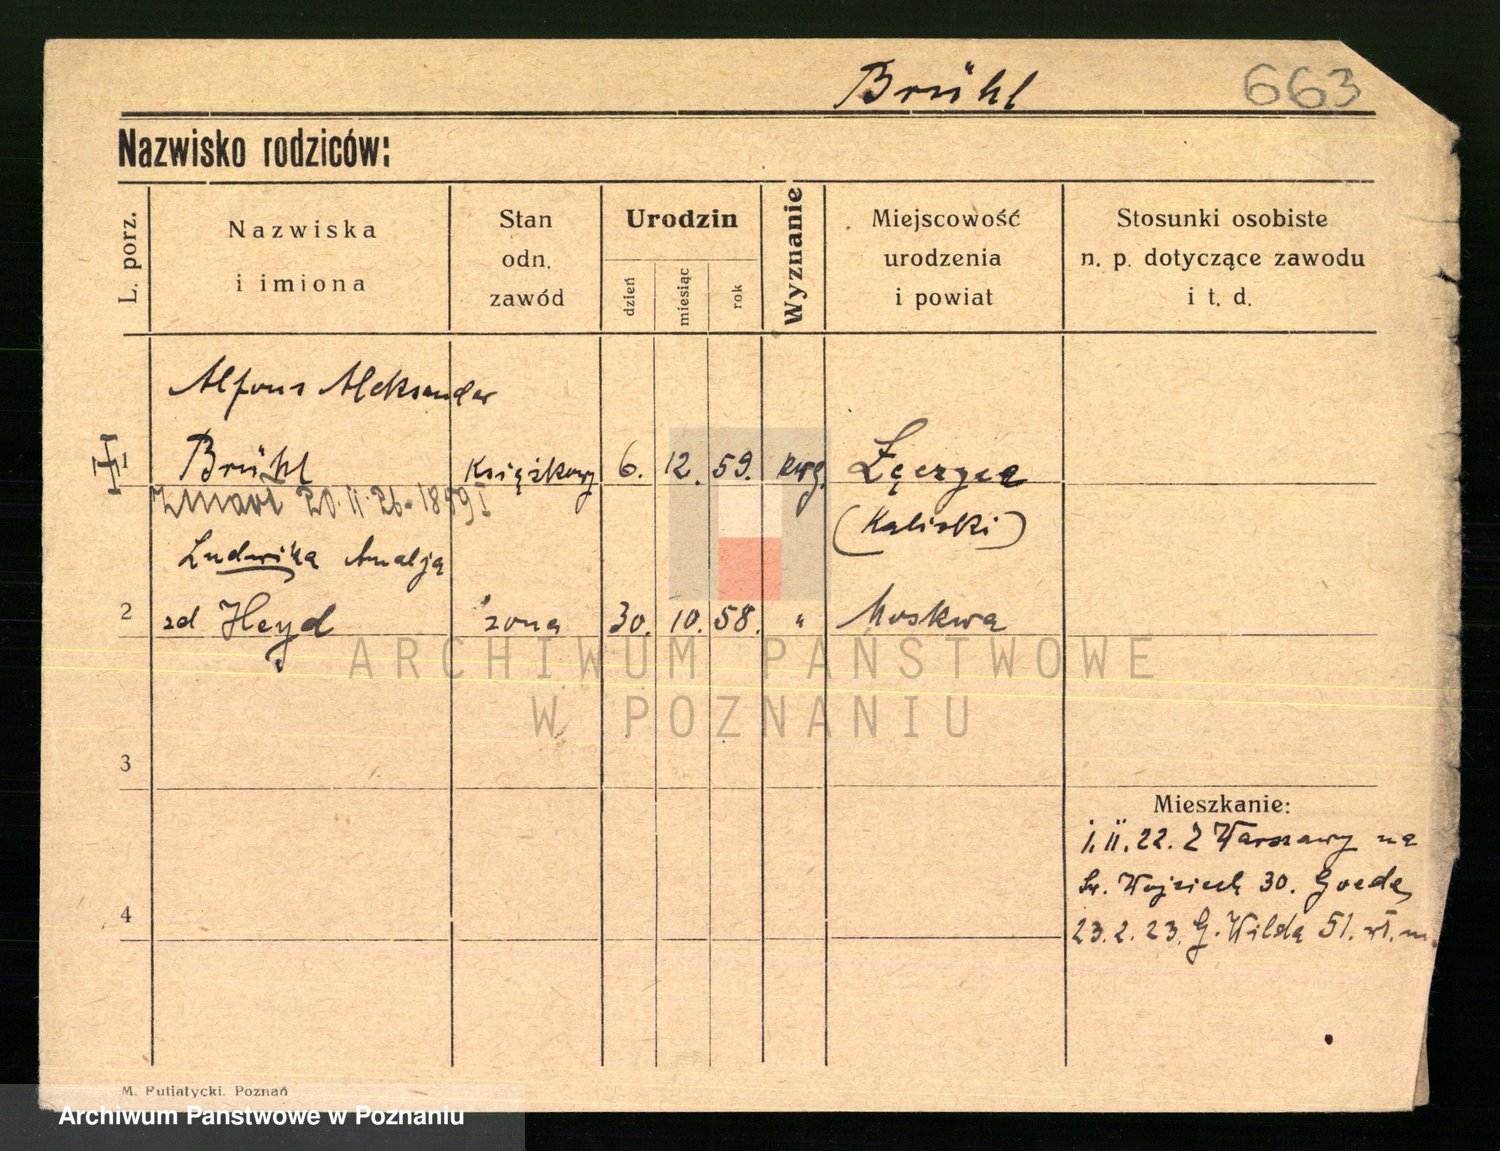 Brühl 663
Nazwisko rodziców:
L. porz.
Nazwiska
i imiona
Stan
odn.
zawód
Urodzin
dzień
miesiąc
rok
Wyznanie
Miejscowość
urodzenia
i powiat
Stosunki osobiste
n. p. dotyczące zawodu
i t. d.
Alfons Aleksander
1 Brühl Książkowy 6. 12. 59. Łęczyca
Zmarł 20.11.26
(Kaliski)
Ludwika Amalja
2 zd Heyd żona 30. 10. 58. " Moskwa
ARCHIWUM PAŃSTWOWE
W POZNANIU
3
Mieszkanie:
1.II.22. Z Warszawy na
Św. Wojciech 30.
4
23.2.23. G. Wilda 51.
M. Putiatycki. Poznań
Archiwum Państwowe w Poznaniu